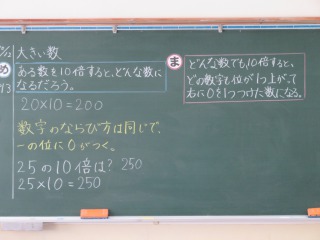 大きい数
め
ある数を10倍すると、どんな数に
なるだろう。
20×10=200
数字のならび方は同じで、
一の位に0がつく。
25の10倍は? 250
25×10=250
ま
どんな数でも、10倍すると、
どの数字も位が1つ上がって
右に0を1つつけた数になる。